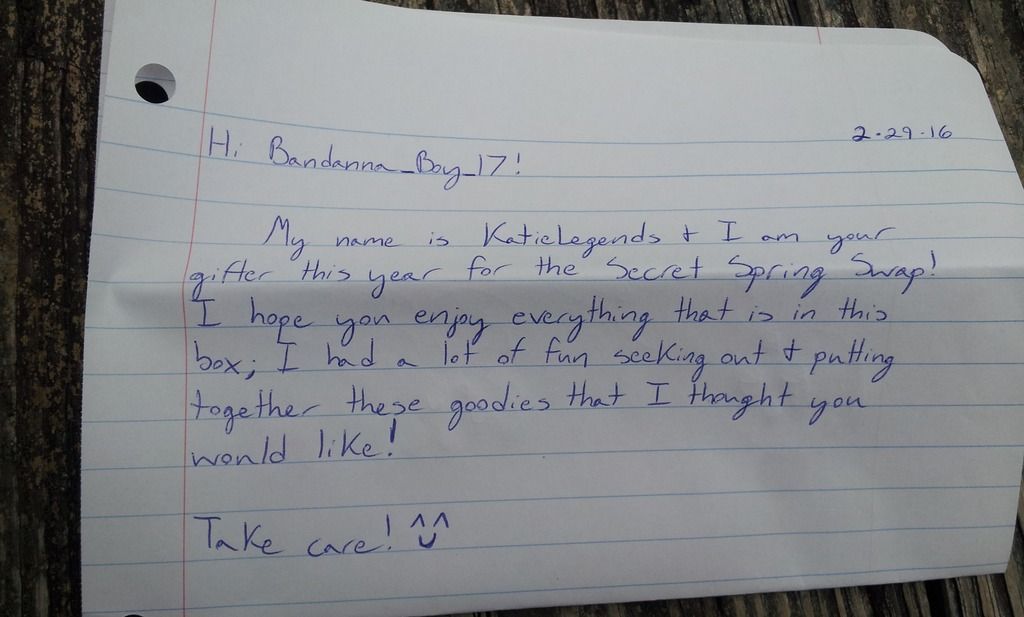 2-29-16
Hi Bandanna_Boy_17!
My name is KatieLegends & I am your
gifter this year for the Secret Spring Swap!
I hope you enjoy everything that is in this
box; I had a lot of fun seeking out & putting
together these goodies that I thought you
would like!
Take care! ^^